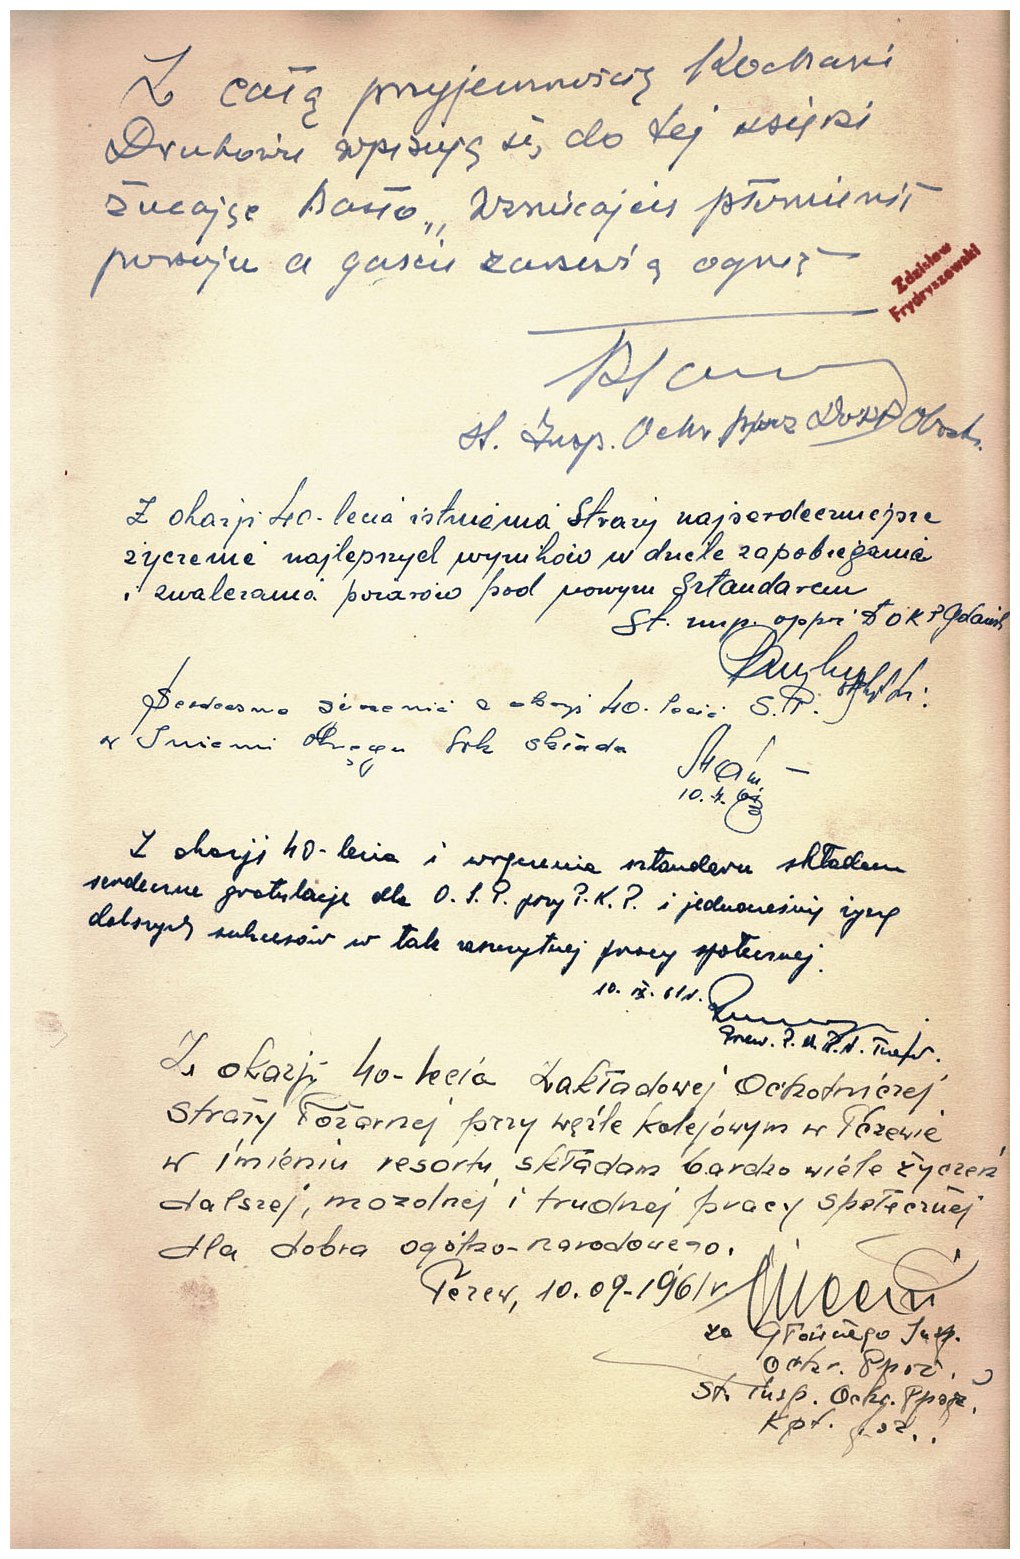 Z całą przyjemnością Kochani
Druhowie wpisuję się do tej księki
żucając hasło „ Wzniecajcie płomienie
pokoju a gaście zarzewia ognia
Zdzisław
Frydryszewski
st. Insp. Ochr ppoż DOKP Olszt.
Z okazji 40-lecia istnienia Straży najserdeczniejsze
życzenia najlepszych wyników w dziele zapobiegania
i zwalczania pożarów pod nowym Sztandarem
St. insp. oppoż DOKP Gdańsk
Serdeczne życzenia z okazji 40-lecia S.P.
w Imieniu Okręgu składa
10.
Z okazji 40-lecia i wręczenia sztandaru składam
serdeczne gratulacje dla O.S.P. przy P.K.P. i jednocześnie życzę
dalszych sukcesów w tak zaszczytnej pracy społecznej.
10. IX. 61r.
Przew. P.M.R.N. Tczew.
Z okazji 40-lecia Zakładowej Ochotniczej
Straży Pożarnej przy węźle kolejowym w Tczewie
w imieniu resortu składam bardzo wiele życzeń
dalszej, mozolnej i trudnej pracy społecznej
dla dobra ogólno-narodowego.
Tczew, 10.09-1961r
za Głównego Insp.
Ochr. Ppoż.
St. Insp. Ochr. Ppoż.
Kpt. poż.